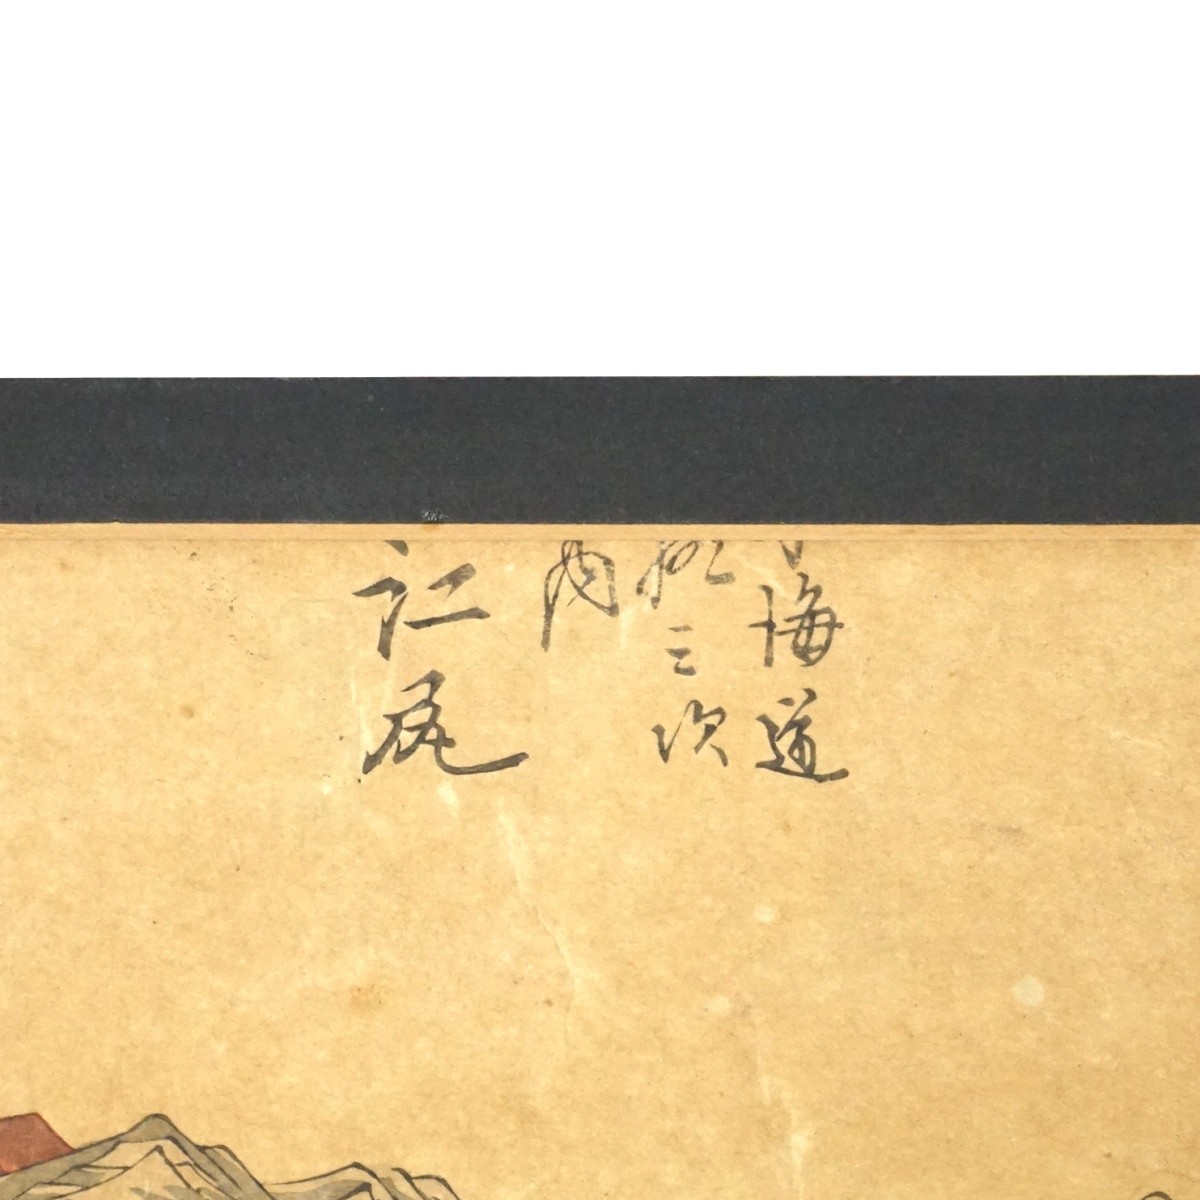 海道
拾三次
内
江尻